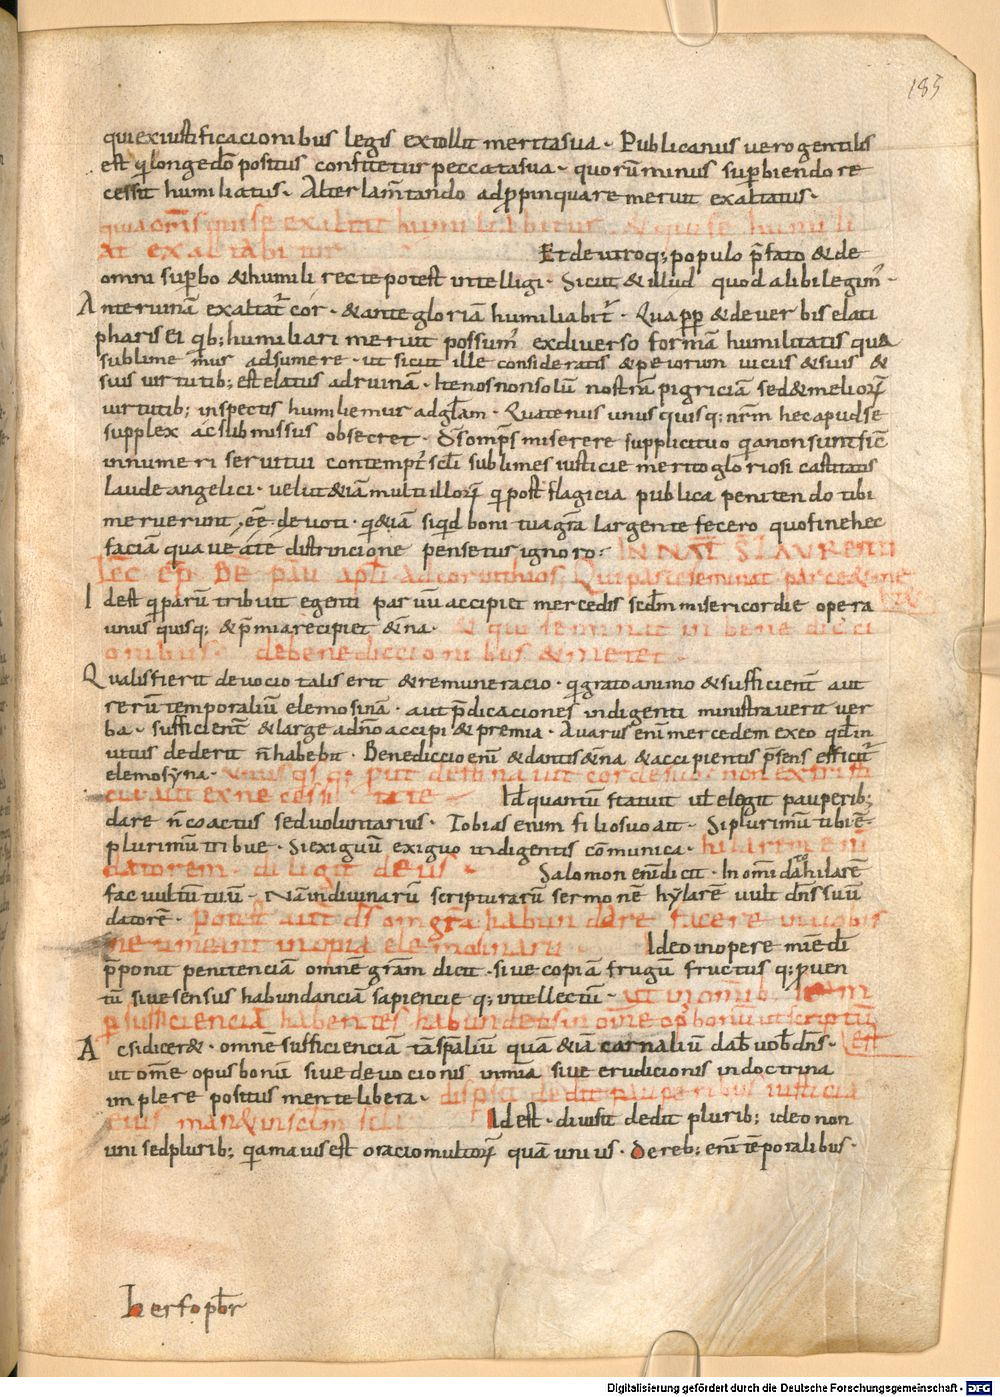 185
qui ex iustificacionibus legis extollit merita sua · Publicanus vero gentilis
est q longe dō positus confitetur peccata sua · quorū minus superbiendo re
cessit humiliatus · Alter lam̄tando adp̄pinquare meruit exaltatus ·
quia om̄is qui se exaltat humiliabitur & qui se humili
at exaltabitur
Et de utroq; populo p̄fato & de
omni sup̄bo & humili recte potest intelligi · Sicut & illud quod alibi legim̄ ·
Ante ruinā exaltat̄ cor · & ante gloriā humiliabit̄ · Qua pp̄ & de verbis elati
pharisei qb; humiliari meruit possum̄ ex diverso formā humilitatis qua
sublimemur adsumere · ut sicut ille consideratis & peiorum viciis & suis &
suis virtutib; est elatus ad ruinā · Ita nos non solū nostrā pigriciā sed & melior
virtutib; inspectis humiliemur ad glām · Quatenus unus quisq; nr̄m hec apud se
supplex ac submissus obsecret · D̄s omp̄s miserere supplici tuo q̄a non sunt sic̄
innumeri servi tui contempt̄ scl̄i sublimes iusticie merito gloriosi castitatis
laude angelici · velut & iā multi illor q post flagicia publica penitendo tibi
meruerunt eē devoti · q & iā siqd boni tua gr̄a largente fecero quo fine hec
faciā qua ve a te districcione pensetur ignoro · IN NAT̄ S̄ LAURENTII
Lēc ep̄ Bē Pau apl̄i ad corinthios · Qui parce seminat parce & me
tet
Id est q parū tribuit egenti parvū accipiet mercedis scd̄m misericordie opera
unus quisq; & p̄mia recipiet & ēna · & qui seminat in benedicci
onibus · de benediccionibus & metet ·
Qualis fierit devocio talis erit & remuneracio · q grato animo & sufficient aut
rerū temporaliū elemosinā · aut p̄dicaciones indigenti ministraverit ver
ba · sufficient & large a dn̄o accipi & premia · Avarus enī mercedem ex eo qd in
vitus dederit n̄ habebit · Benediccio enī & dantis & ēna & accipientis p̄sens efficit̄
elemosyna · Unus qs q; put destinavit corde suo · non ex tristi
cia aut ex necessitate
Id quantū statuit ut elegit pauperib;
dare n̄ coactus sed voluntarius · Tobias enim filio suo ait · Si plurimū tibi ē
plurimū tribue · Si exiguū exiguo indigentis cōmunica · hilarem enī
datorem · diligit deus ·
Salomon enī dicit · In omi dato hilarē
fac vultū tuū · Nā in divinarū scripturarū sermonē hylarē vult dn̄s suū
datorē · Potest aut̄ d̄s om̄ gr̄a habundare facere in vobis
ne timeant inopia elemosinarii ·
Ideo in opere mīe dī
p̄ponit penitenciā omnē gr̄am dicit · sive copiā frugū fructusq; p̄ven
tū sive sensus habundanciā sapiencieq; intellectū · ut in omib; semp
p sufficienciā habentes habundetis in om̄e op̄ bonū ut scriptū
est
Ac si dicer& · omnē sufficienciā tā sp̄aliū quā & iā carnaliū dab̄ vob̄ dn̄s ·
ut om̄e opus bonū sive devocionis in mīa sive erudicionis in doctrina
implere possitis mente libera · dispsit dedit pauperibus iusticia
eius man& in sc̄lm sc̄li
Id est · divisit dedit plurib; ideo non
uni sed plurib; q̄a maius est oracio multor quā unius · De reb; enī tēporalibus ·
herfo pb̄r
Digitalisierung gefördert durch die Deutsche Forschungsgemeinschaft - DFG